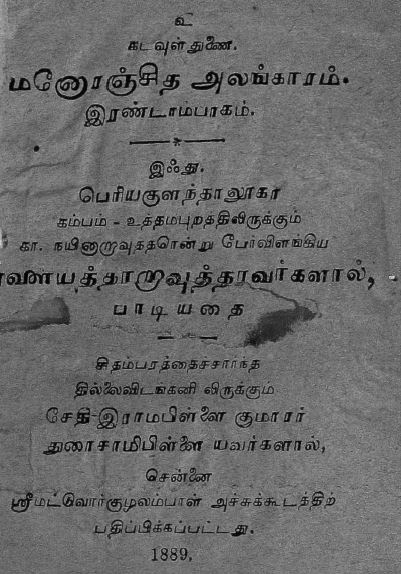 உ
கடவுள் துணை.
மனோரஞ்சித அலங்காரம்.
இரண்டாம்பாகம்.
இஃது.
பெரியகுளந்தாலூகா
கம்பம் - உத்தமபுரத்திலிருக்கும்
கா. நயினாறாவுத்தரென்று பேர்விளங்கிய
பாடியதை
சிதம்பரத்தைச்சார்ந்த
தில்லைவிடங்கனி லிருக்கும்
சேதி-இராமபிள்ளை குமாரர்
துரைசாமிபிள்ளை யவர்களால்,
சென்னை
ஸ்ரீமட்டுவார்குழலம்பாள் அச்சுக்கூடத்திற்
பதிப்பிக்கப்பட்டது.
1889,